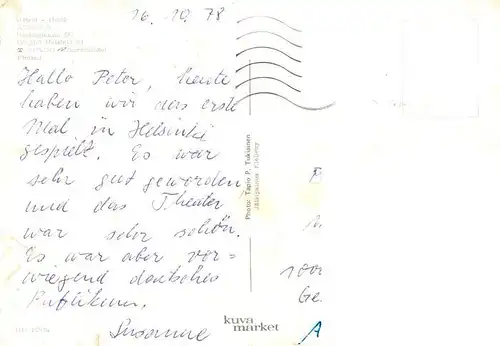 16.10.78
Hallo Peter, heute
haben wir das erste
Mal in Helsinki
gespielt. Es war
sehr gut geworden
und das Theater
war sehr schön.
Es war aber vor=
wiegend deutsches
Publikum.
Susanne
Photo: Tapio P. Tukiainen
kuva
market
100
Ge
A